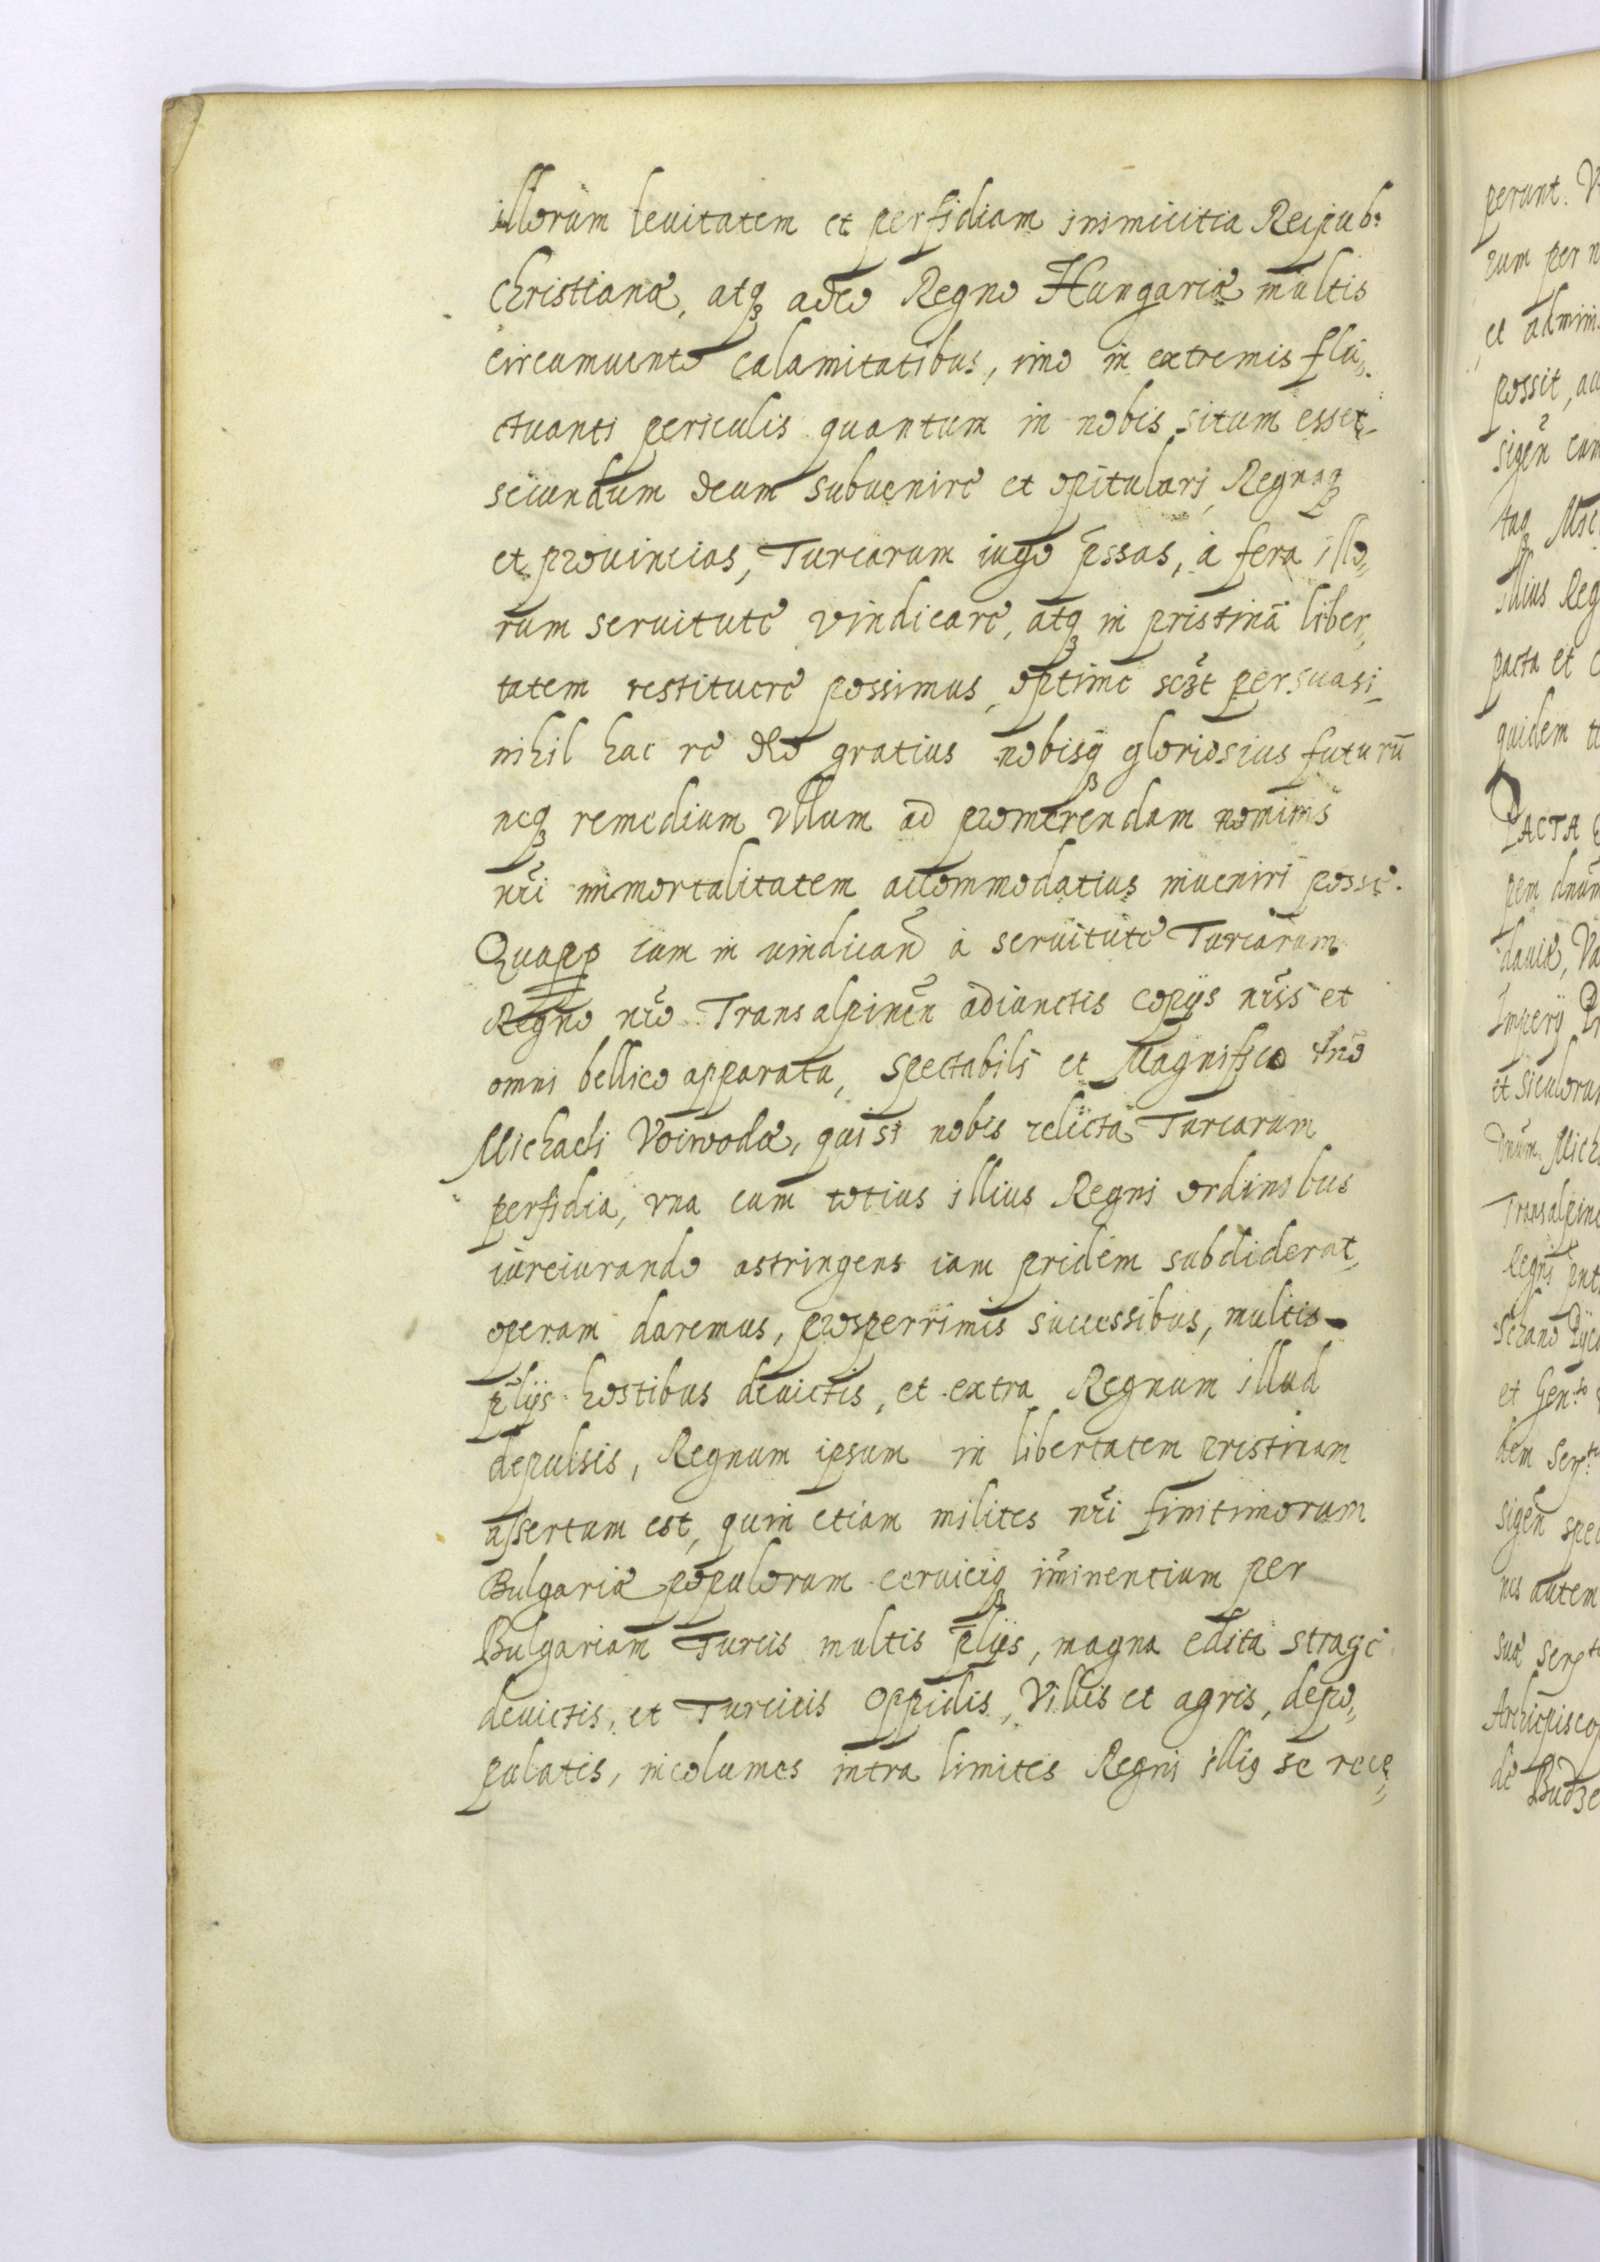 illorum leuitatem et perfidiam inimicitia Reipub:
Christianæ, atq₃ adeo Regno Hungariæ multis
circumuento calamitatibus, imo in extremis flu„
ctuanti periculis quantum in nobis situm esset
secundum deum subuenire et opitulari, Regnaq₃
et prouincias, Turcarum iugo p̄ssas, à fera illo„
rum seruitute vindicare, atq₃ in pristinā liber„
tatem restituere possimus, optime persuasi
nihil hac re deo gratius nobisq₃ gloriosius futurū
neq₃ remedium vllum ad promerendam nominis
nr̄i immortalitatem accommodatius inueniri posse.
Quapp cum in uindican̄ à seruitute Turcarum
Regno nr̄o Transalpinen̄ adiunctis copijs nr̄is et
omni bellico apparatu, spectabili et Magnifico dn̄o
Michaeli Voiwodæ, qui si nobis relicta Turcarum
perfidia, vna cum totius illius Regni ordinibus
iureiurando astringens iam pridem subdiderat,
operam daremus, prosperrimis successibus, multis
p̄lijs hostibus deuictis, et extra Regnum illud
depulsis, Regnum ipsum in libertatem pristinam
assertum est, quin etiam milites nr̄i finitimorum
Bulgariæ populorum ceruiciq₃ im̄inentium per
Bulgariam Turcis multis p̄lijs, magna edita strage
deuictis, et Turcicis Oppidis, Villis et agris, depo„
pulatis, incolumes intra limites Regni illiꝯ se rece„
perunt. V
rum per n
et admini
possit, au
sigen̄ cum
taq₃
illius Reg
pacta et c
quidem
PACTA
pem dnūm
dauiæ, Va
Imperij
et Siculorum
Dnūm Mich
Transalpine
Regni
et Gen:to
dem Ser:
sigen̄ spec
nes autem
suæ Ser
Archiepiscop
de Budze